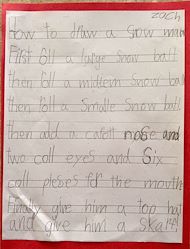 zoch
How to draw a snow man
First Roll a large snow ball
then Roll a midiem snow ball
then Roll a smalle snow ball
then add a carott nose and
two coll eyes and Six
coll pieses for the mouth
Finally give him a top hat
and give him a skarf!